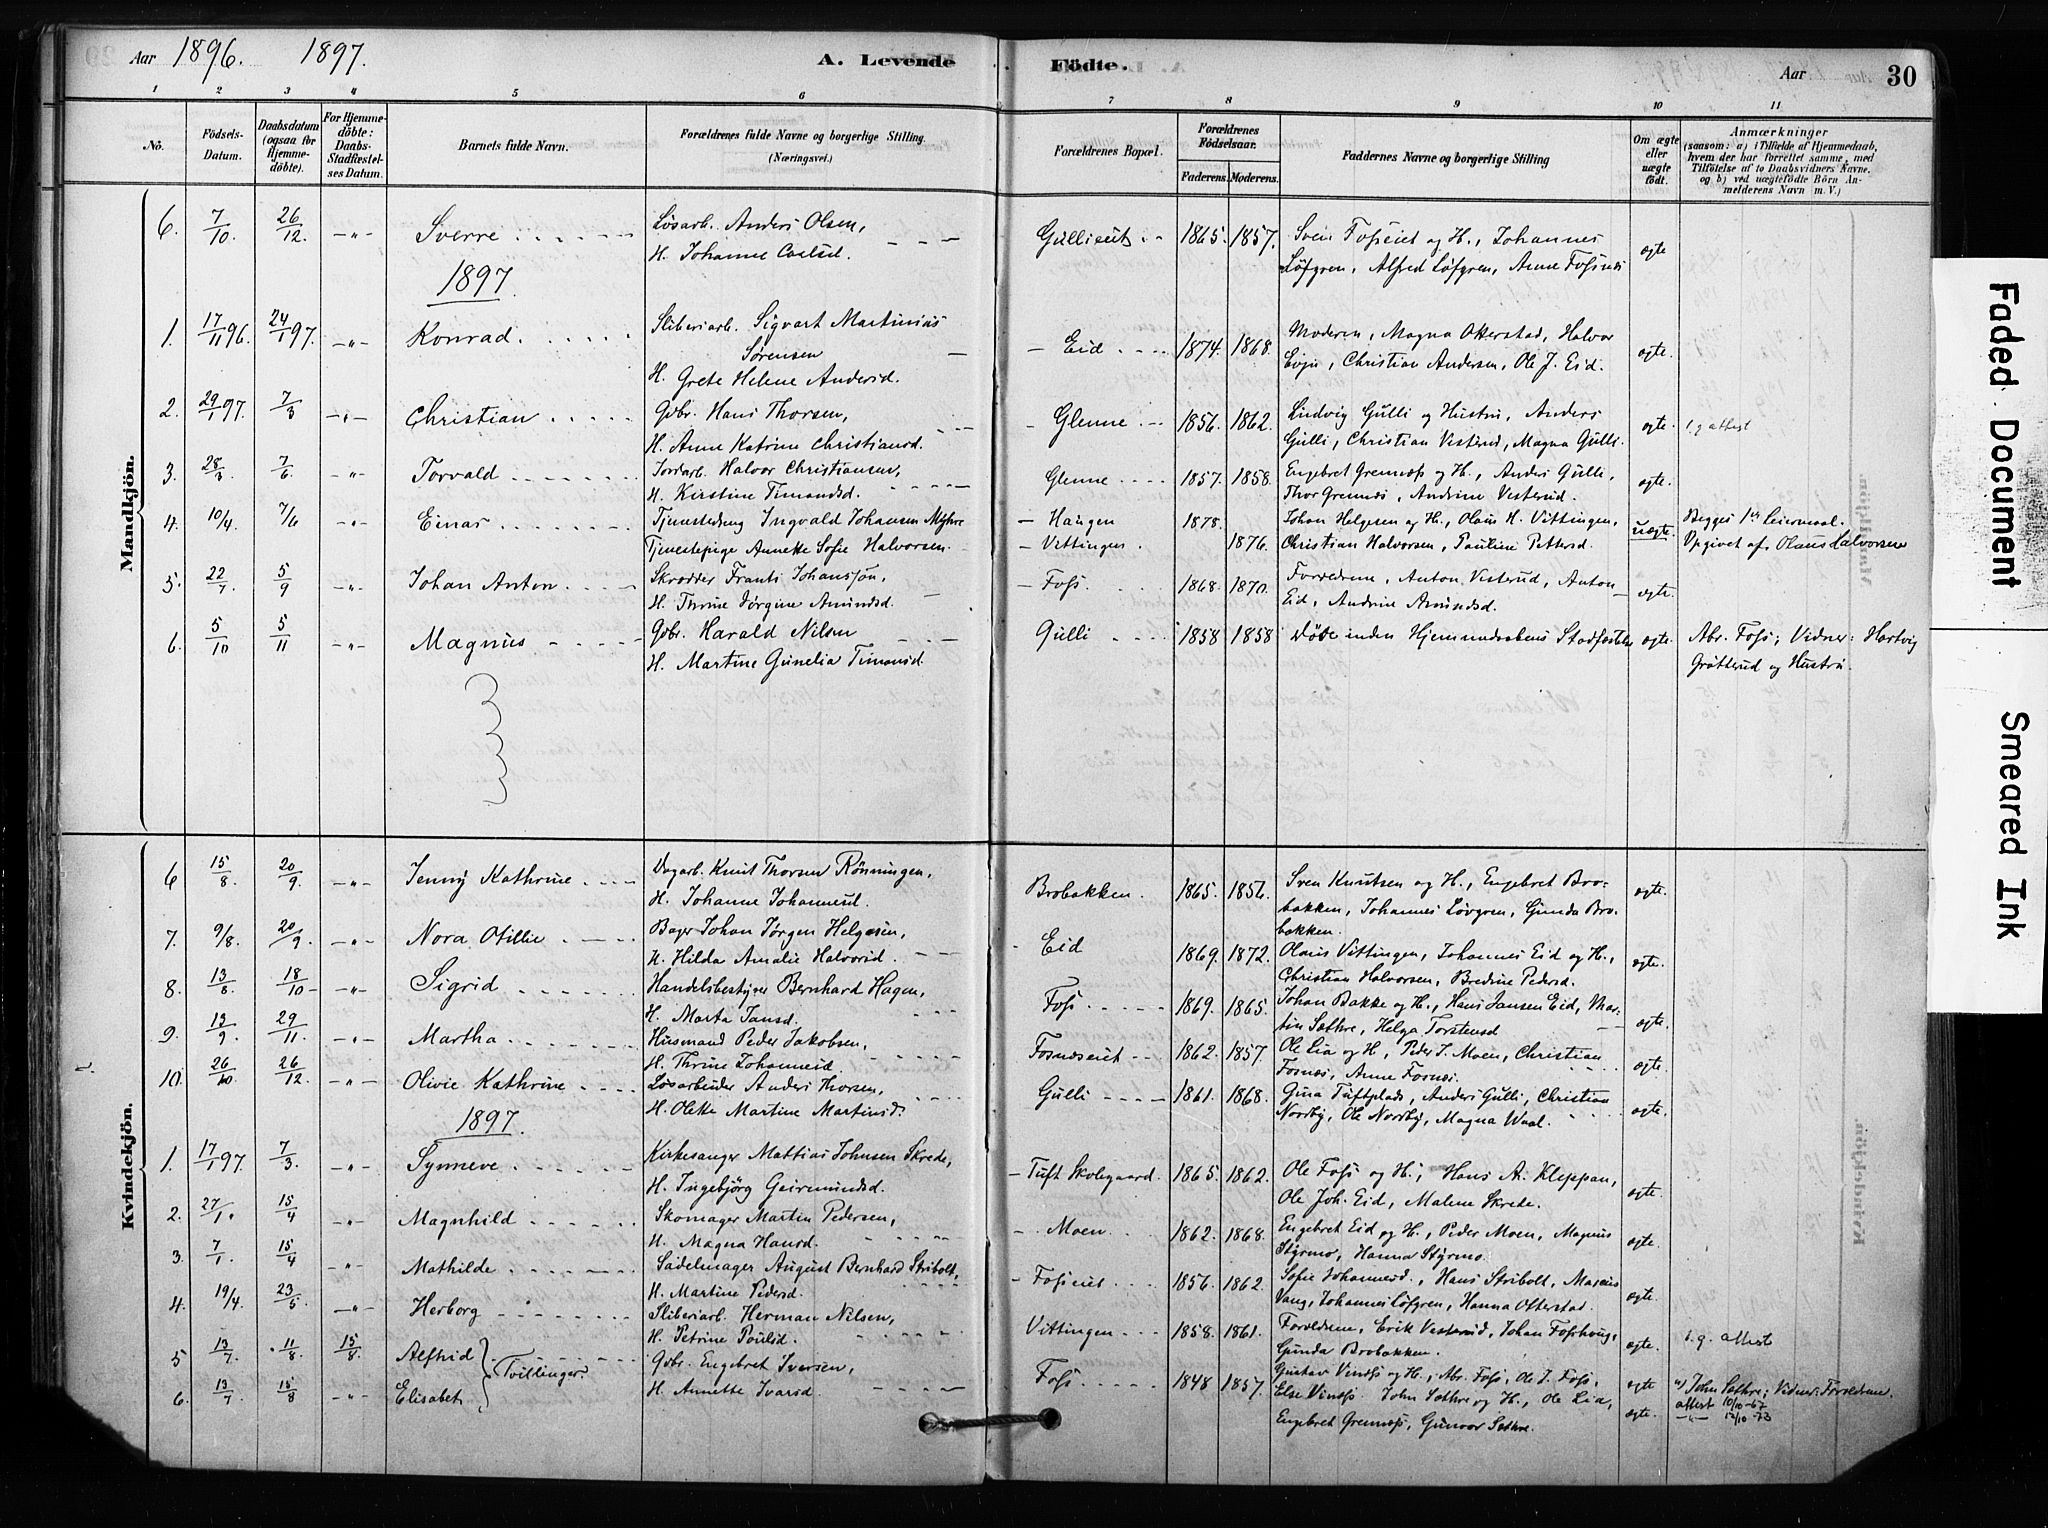 Aar 1896. 1897. A. Levende Födte. Aar 30
1 2 3 4 5 6 7 8 9 10 11
No. Födsels-Datum. Daabsdatum (ogsaa for Hjemmedöbte). For Hjemmedöbte: Daabs-Stadfæstelses Datum. Barnets fulde Navn. Forældrenes fulde Navne og borgerlige Stilling. (Næringsvei.) Forældrenes Bopæl. Forældrenes Födselsaar. Faderens. Moderens. Faddernes Navne og borgerlige Stilling Om ægte eller uægte födt. Anmærkninger (saasom: a) i Tilfælde af Hjemmedaab, hvem der har forrettet samme, med Tilföielse af to Daabsvidners Navne, og b) ved uægtefödte Börn Anmelderens Navn m. V.)
Mandkjön.
6. 7/10. 26/12 -"- Sverre Løsarb. Anders Olsen, Gullieie 1865. 1857. Svein Fosseiet og H., Johannes ægte
H. Johanne Carlsd. Løfgren, Alfred Løfgren, Anne Fosnæs
1897
1. 17/11 96. 24/1 97. -"- Konrad. Sliberiarb. Sigvart Martinius Eid 1874. 1868. Moderen, Magna Otterstad, Halvor ægte.
Sørensen Evju, Christian Andersen, Ole J. Eid.
H. Grete Helene Andersd.
2. 29/1 97. 7/3 -"- Christian Gbr. Hans Thorsen, Glenne 1856. 1862. Ludvig Gulli og Hustru, Anders ægte. i. g. attest
H. Anne Katrine Christiansd. Gulli, Christian Vesterud, Magna Gulli.
3. 28/3 7/6 -"- Torvald Jordarb. Halvor Christiansen, Glenne 1857. 1858. Engebret Grennæss og H., Anders Gulli, ægte.
H. Kirstine Timandsd. Thor Grennæs, Andrine Vesterud.
4. 10/4. 7/6 -"- Einar Tjenestedreng Ingvald Johansen Myhre Haugen 1878. Johan Helgesen og H., Olaus H. Vittingen, uægte Begges 1ste Leiermaal.
Tjenestepige Annette Sofie Halvorsen Vittingen. 1876. Christian Halvorsen, Pauline Pettersd. Opgivet af: Olaus Halvorsen
5. 22/7. 5/9 -"- Johan Anton Skrædder Frants Johansson, Foss 1868. 1870. Forældrene, Anton Vesterud, Anton ægte.
H. Thrine Jørgine Amundsd. Eid, Andrine Amundsd.
6. 5/10 5/11 -"- Magnus Gbr. Harald Nilsen Gulli 1858 1858 døde inden Hjemmedaabens Stadfæstelse ægte. Abr. Foss; Vidner: Hartvig
H. Martine Gunelia Timansd. Gråtterud og Hustru.
Kvindekjön.
6 15/8. 20/9. -"- Jenny Kathrine Dagarb. Knut Thorsen Rönningen, Brobakken. 1865. 1856. Sven Knutsen og H., Engebret Bro- ægte.
H. Johanne Johannesd. bakken, Johannes Løvgren, Gunda Bro-
bakken.
7. 9/8. 20/9. -"- Nora Otillie Bager Johan Jörgen Helgesen, Eid 1869. 1872. Olaus Vittingen, Johannes Eid og H., ægte.
H. Hilda Amalie Halvorsd. Christian Halvorsen, Bredine Pedersd.
8. 13/8 18/10 -"- Sigrid Handelsbestyrer Bernhard Hagen, Foss 1869. 1865. Johan Bakke og H., Hans Jansen Eid, Mar- ægte.
H. Marta Jansd. tin Sæthre, Helga Torstensd
9. 13/9. 29/11. -"- Martha Husmand Peder Jakobsen, Fosnæseiet 1862. 1857. Ole Lia og H, Peder J. Moen, Christian ægte.
H. Thrine Johannesd. Fosnæs, Anne Fosnæs.
10. 26/10 26/12. -"- Olivie Kathrine Løsarbeider Anders Thorsen, Gulli 1861. 1868. Gina Tuftplads, Anders Gulli, Christian ægte.
H. Olette Martine Martinsd. Nordby, Ole Nordby, Magna Waal.
1897.
1. 17/1 97. 7/3. -"- Synneve Kirkesanger Mattias Johnsen Skrede, Tuft Skolegaard. 1865. 1862. Ole Foss og H., Hans A. Kleppan, ægte.
H. Ingebjörg Geirmundsd. Ole Joh. Eid, Malene Skrede.
2. 27/1. 15/4 -"- Magnhild Skomager Martin Pedersen, Moen 1862. 1868. Engebret Eid og H., Peder Moen, Magnus ægte.
H. Magna Hansd. Styrmo, Hanna Styrmo.
3. 7/1. 15/4 -"- Mathilde Sadelmager August Bernhard Stribolt, Fosseiet 1856. 1862. Sofie Johannesd., Hans Stribolt, Marcus ægte.
H. Martine Pedersd. Vang, Johannes Løfgren, Hanna Otterstad.
4. 19/4. 23/5 -"- Herborg Sliberiarb. Herman Nilsen, Vittingen 1858. 1861. Forældrene, Erik Vesterud, Johan Fosshaug, ægte. i. g. attest
H. Petrine Poulsd. Gunda Brobakken.
5 13/7 11/8 15/8. Alfhild } Tvillinger. Gbr. Engebret Iversen, Foss 1848 1857. Gustav Vindss og H., Abr. Foss, Ole J. Foss, ægte John Sæthre; Vidner: Forældrene.
6. 13/7 15/8 -"- Elisabet H. Annette Ivarsd. Else Vindss. John Sæthre og H., Ole Lia, ægte. attest 10/10 -67
Engebret Grennæss, Gunvor Sæthre. -"- 12/10 -73
Faded Document Smeared Ink